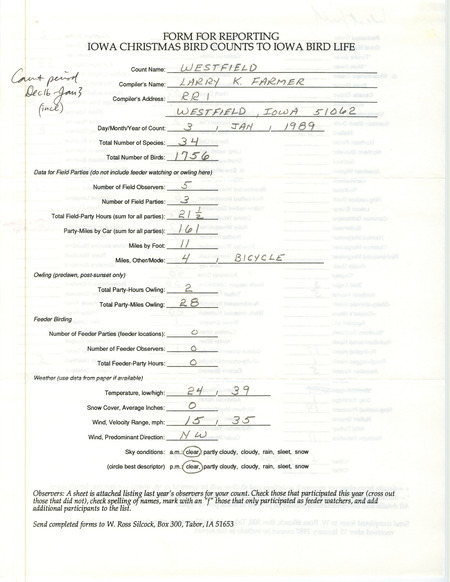 FORM FOR REPORTING
IOWA CHRISTMAS BIRD COUNTS TO IOWA BIRD LIFE
Count period
Dec 16 - Jan 3
(incl)
Count Name: WESTFIELD
Compiler's Name: LARRY K. FARMER
Compiler's Address: RR 1
WESTFIELD, IOWA 51062
Day/Month/Year of Count: 3, JAN, 1989
Total Number of Species: 34
Total Number of Birds: 1756
Data for Field Parties (do not include feeder watching or owling here)
Number of Field Observers: 5
Number of Field Parties: 3
Total Field-Party Hours (sum for all parties): 21 1/2
Party-Miles by Car (sum for all parties): 161
Miles by Foot: 11
Miles, Other/Mode: 4, BICYCLE
Owling (predawn, post-sunset only)
Total Party-Hours Owling: 2
Total Party-Miles Owling: 28
Feeder Birding
Number of Feeder Parties (feeder locations): 0
Number of Feeder Observers: 0
Total Feeder-Party Hours: 0
Weather (use data from paper if available)
Temperature, low/high: 24, 39
Snow Cover, Average Inches: 0
Wind, Velocity Range, mph: 15, 35
Wind, Predominant Direction: NW
Sky conditions: a.m.: clear, partly cloudy, cloudy, rain, sleet, snow
(circle best descriptor) p.m.: clear, partly cloudy, cloudy, rain, sleet, snow
Observers: A sheet is attached listing last year's observers for your count. Check those that participated this year (cross out
those that did not), check spelling of names, mark with an "f" those that only participated as feeder watchers, and add
additional participants to the list.
Send completed forms to W. Ross Silcock, Box 300, Tabor, IA 51653